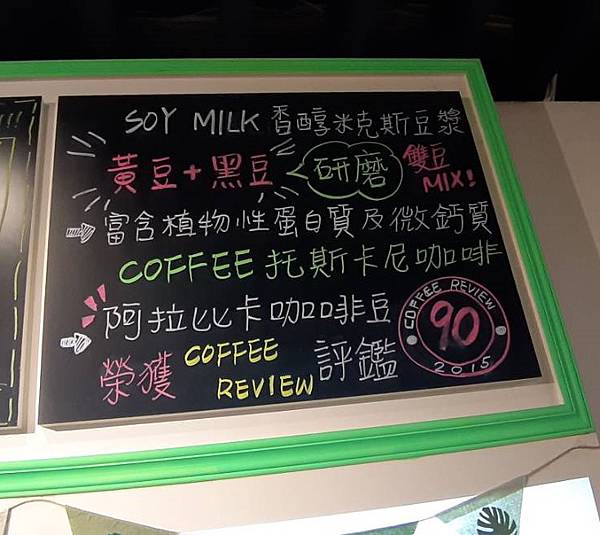 SOY MILK 香醇米克斯豆漿
黃豆+黑豆 研磨 雙豆 MIX!
富含植物性蛋白質及微鈣質
COFFEE 托斯卡尼咖啡
阿拉比卡咖啡豆
榮獲 COFFEE REVIEW 評鑑
COFFEE REVIEW
90
2015